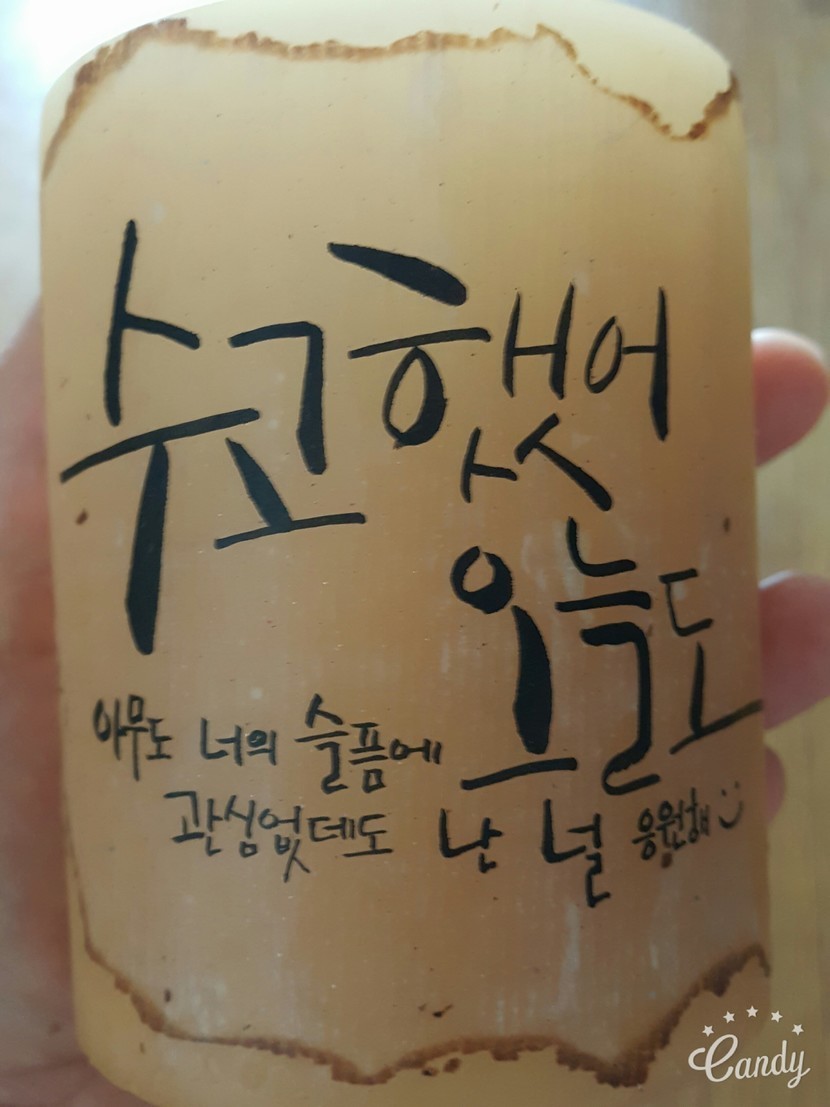 수고했어
오늘도
아무도 너의 슬픔에
관심없데도 난 널 응원해
Candy